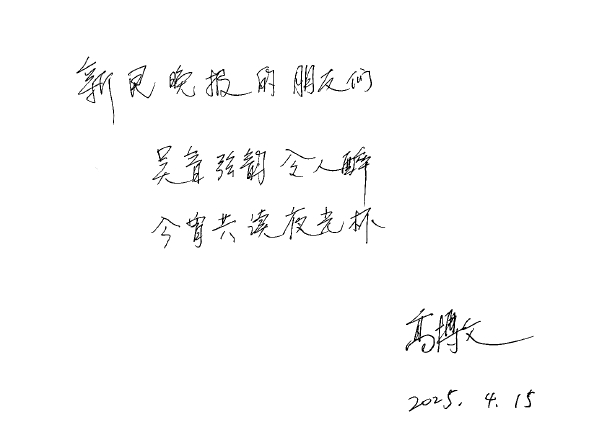 新民晚报的朋友们
吴音弦韵令人醉
今宵共读夜光杯
高博文
2025. 4. 15